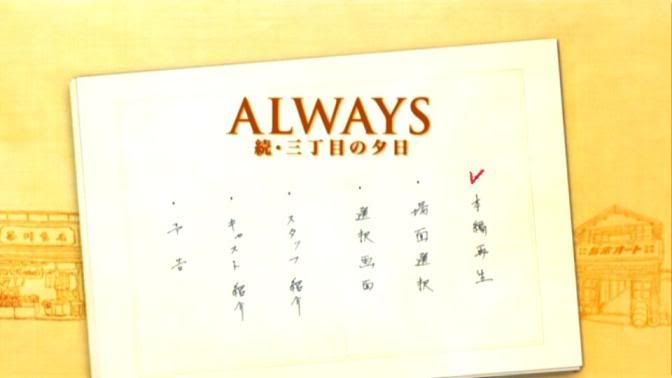 ALWAYS
続・三丁目の夕日
本編再生
・場面選択
・選択画面
・スタッフ紹介
・キャスト紹介
・予告
鈴木オート